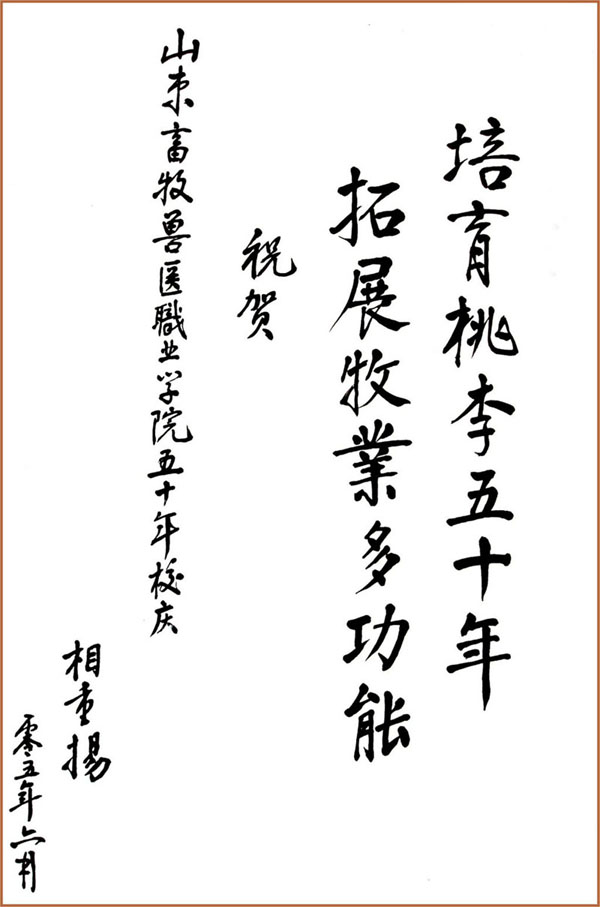 培育桃李五十年
拓展牧業多功能
祝贺
山东畜牧兽医職业学院五十年校庆
相重揚
零五年六月